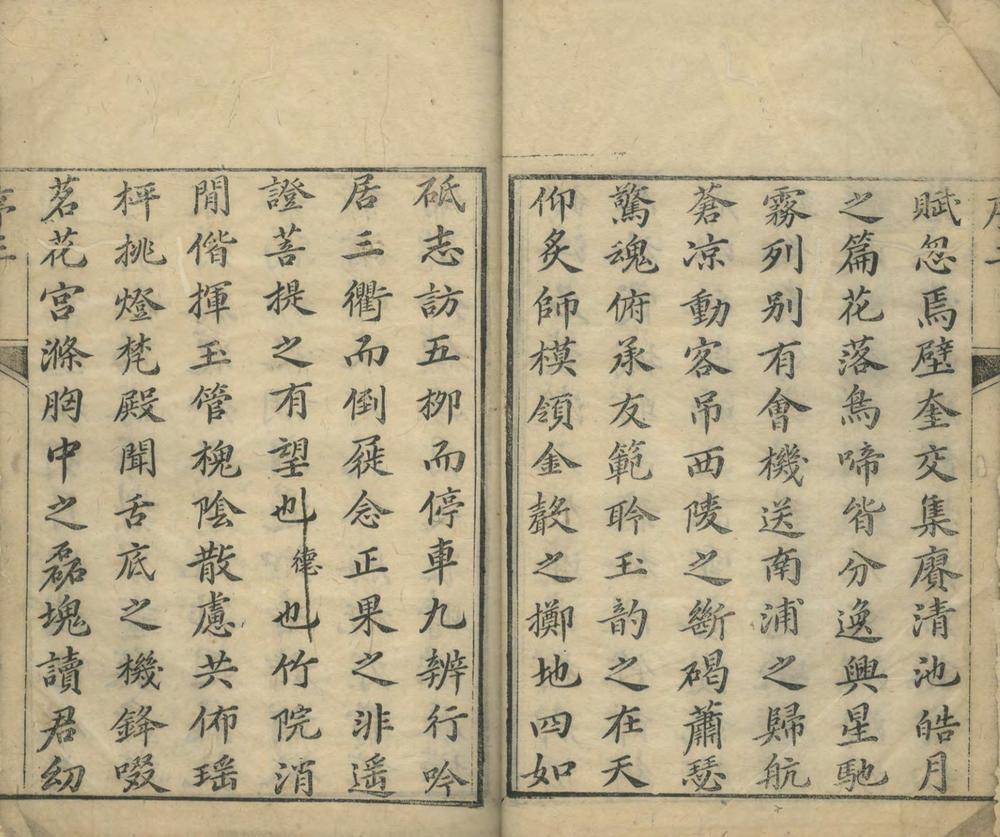 賦忽焉壁奎交集賡清池皓月
之篇花落鳥啼皆分逸興星馳
霧列别有會機送南浦之歸航
蒼凉動客吊西陵之斷碣蕭瑟
驚魂俯承友範聆玉韵之在天
仰炙師模領金聲之擲地四如
砥志訪五柳而停車九辨行吟
居三衢而倒屣念正果之非遥
證菩提之有望也德也竹院消
閒偕揮玉管槐陰散慮共佈瑶
枰挑燈梵殿聞舌底之機鋒啜
茗花宮滌胸中之磊塊讀君幼